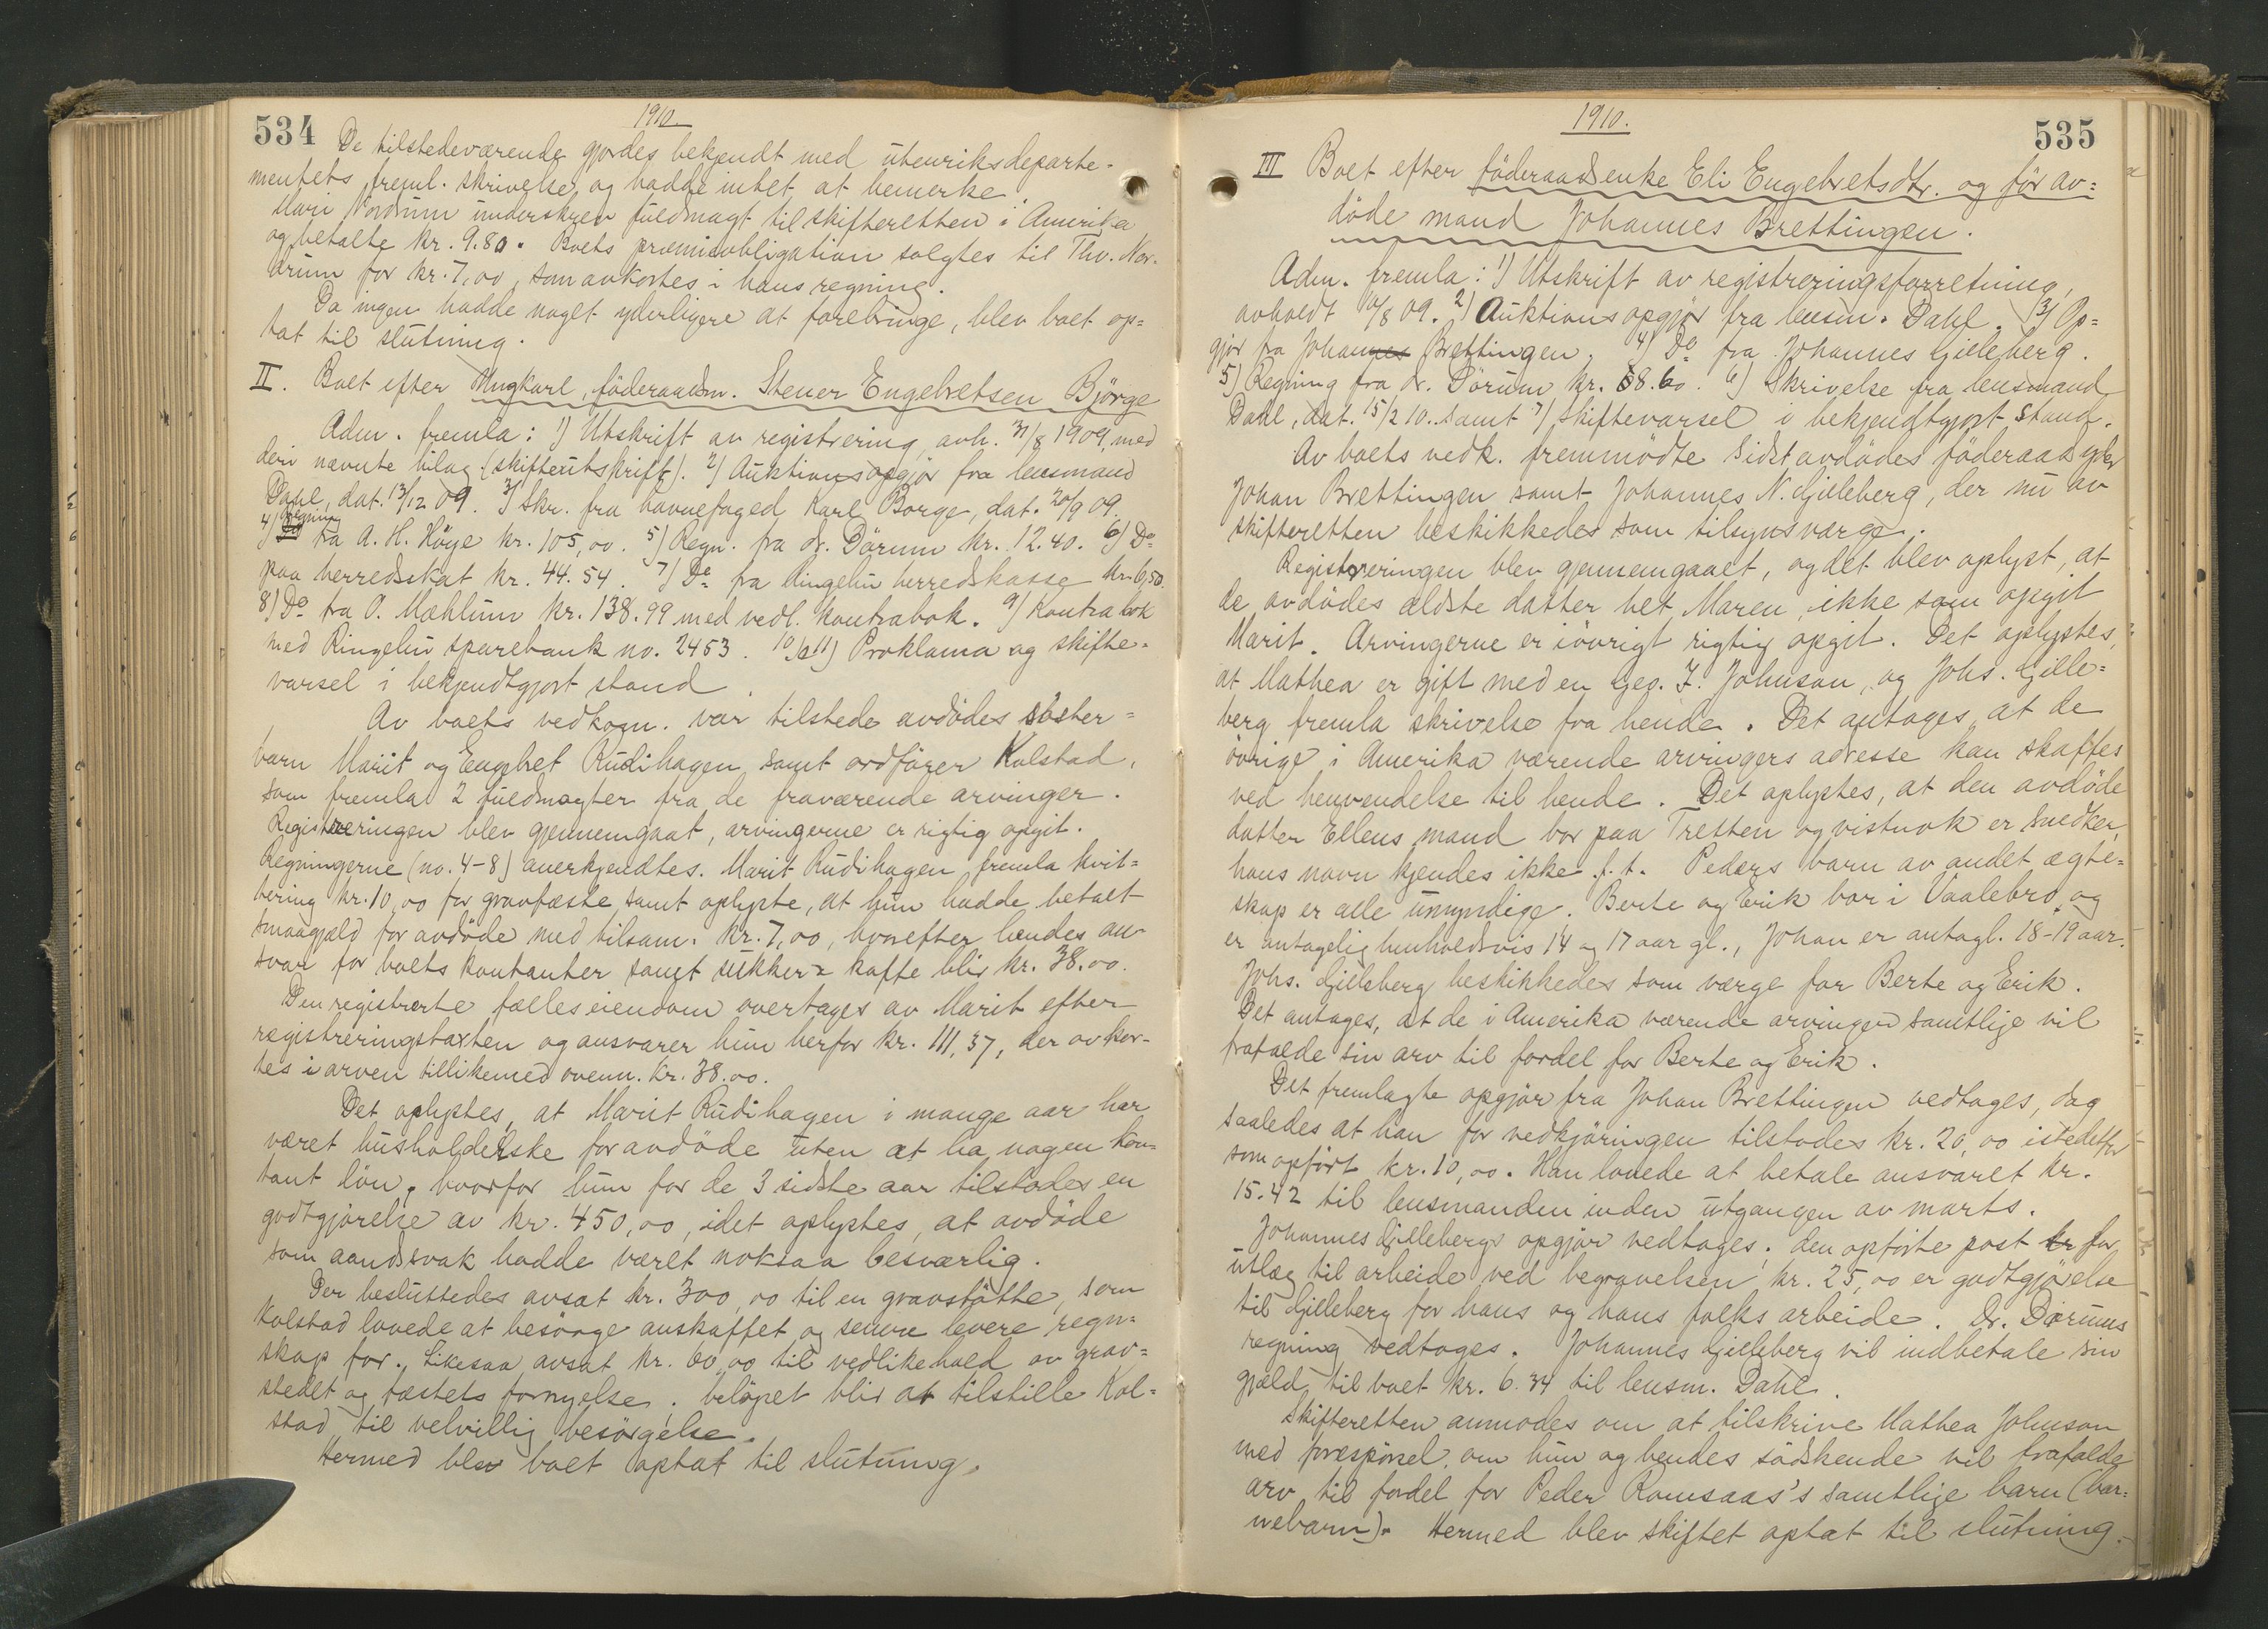 534
1910.
De tilstedeværende gjordes bekjendt med utenriksdeparte-
mentets freml. skrivelse og hadde intet at bemerke.
Mari Nordrum underskrev fuldmagt til skifteretten i Amerika
og betalte kr. 9.80. Boets præmieobligation solgtes til Thv. Nor-
drum for kr. 7,00, som avkortes i hans regning.
Da ingen hadde noget yderligere at forebringe, blev boet op=
tat til slutning.
II. Boet efter Ungkarl, föderaadsm. Stener Engebretsen Björge
Adm. fremla: 1) Utskrift av registrering, avh. 31/8 1909, med
deri nævnte bilag (skifteutskrift). 2) Auktionsopgjör fra lensmand
Dahl, dat. 13/12 09. 3) Skr. fra havnefoged Karl Borge, dat. 20/9 09.
4) Regning fra A. H. Höye kr. 105,00. 5) Regn. fra dr. Dörum kr. 12.40. 6) Do
paa herredsskat kr. 44.54. 7) Do fra Ringebu herredskasse kr. 6,50.
8) Do fra O. Mæhlum kr. 138.99 med vedl. kontrabok. 9) Kontrabok
med Ringebu sparebank no. 2453. 10) & 11) Proklama og skifte-
varsel i bekjendtgjort stand.
Av boets vedkom. var tilstede avdödes söster=
barn Marit og Engebret Rudihagen samt ordförer Kolstad,
som fremla 2 fuldmagter fra de fraværende arvinger.
Registreringen blev gjennemgaat, arvingerne er rigtig opgit.
Regningerne (no. 4-8) anerkjendtes. Marit Rudihagen fremla kvit=
tering kr. 10,00 for gravfæste samt oplyste, at hun hadde betalt
smaagjæld for avdöde med tilsam. kr. 7,00, hvorefter hendes an-
svar for boets kontanter samt sukker & kaffe blir kr. 38.00.
Den registrerte fælleseiendom overtages av Marit efter
registreringstaxten og ansvarer hun herfor kr. 111,37, der avkor-
tes i arven tillikemed ovenn. kr. 38.00.
Det oplystes, at Marit Rudihagen i mange aar har
været husholderske for avdöde uten at ha nogen kon=
tant lön, hvorfor hun for de 3 sidste aar tilstodes en
godtgjörelse av kr. 450,00, idet oplystes, at avdöde
som aandssvak hadde været noksaa besværlig.
Der besluttedes avsat kr. 300,00 til en gravstötte, som
Kolstad lovede at besörge anskaffet og senere levere regn=
skap for. Likesaa avsat kr. 60,00 til vedlikehold av grav=
stedet og fæstets fornyelse. belöpet blir at tilstille Kol=
stad til velvillig besörgelse.
Hermed blev boet optat til slutning.
535
1910.
III Boet efter föderaadsenke Eli Engebretsdtr. og för av=
döde mand Johannes Brettingen.
Adm. fremla: 1) Utskrift av registreringsforretning,
avholdt 10/8 09. 2) Auktionsopgjör fra lensm. Dahl. 3) Op=
gjör fra Johannes Brettingen. 4) Do fra Johannes Gjilleberg.
5) Regning fra dr. Dörum kr. 8.60. 6) Skrivelse fra lensmand
Dahl, dat. 15/2 10. samt 7) Skiftevarsel i bekjendtgjort stand.
Av boets vedk. fremmödte sidst avdödes föderaadsyder
Johan Brettingen samt Johannes N. Gjilleberg, der nu av
skifteretten beskikkedes som tilsynsværge.
Registreringen blev gjennemgaaet, og det blev oplyst, at
de avdödes ældste datter het Maren, ikke som opgit
Marit. Arvingerne er iövrigt rigtig opgit. Det oplystes,
at Mathea er gift med en Geo. J. Johnson, og Johs. Gjille=
berg fremla skrivelse fra hende. Det antages, at de
övrige i Amerika værende arvingers adresse kan skaffes
ved henvendelse til hende. Det oplystes, at den avdöde
datter Ellens mand bor paa Tretten og vistnok er snedker,
hans navn kjendes ikke f. t. Peders barn av andet ægte=
skap er alle umyndige. Berte og Erik bor i Vaalebro og
er antagelig henholdsvis 14 og 17 aar gl., Johan er antagl. 18-19 aar.
Johs. Gjilleberg beskikkedes som værge for Berte og Erik.
Det antages, at de i Amerika værende arvinger samtlige vil
frafalde sin arv til fordel for Berte og Erik.
Det fremlagte opgjör fra Johan Brettingen vedtoges, dog
saaledes at han for vedkjöringen tilstodes kr. 20,00 istedetfor
som opfört kr. 10,00. Han lovede at betale ansvaret kr.
15.42 til lensmanden inden utgangen av marts.
Johannes Gjillebergs opgjör vedtoges; den opförte post kr for
utlæg til arbeide ved begravelsen kr. 25,00 er godtgjörelse
til Gjilleberg for hans og hans folks arbeide. Dr. Dörums
regning vedtoges. Johannes Gjilleberg vil indbetale sin
gjæld til boet kr. 6.34 til lensm. Dahl.
Skifteretten anmodes om at tilskrive Mathea Johnson
med forespörsel, om hun og hendes södskende vil frafalde
arv til fordel for Peder Romsaas's samtlige barn (bar=
nebarn). Hermed blev skiftet optat til slutning.